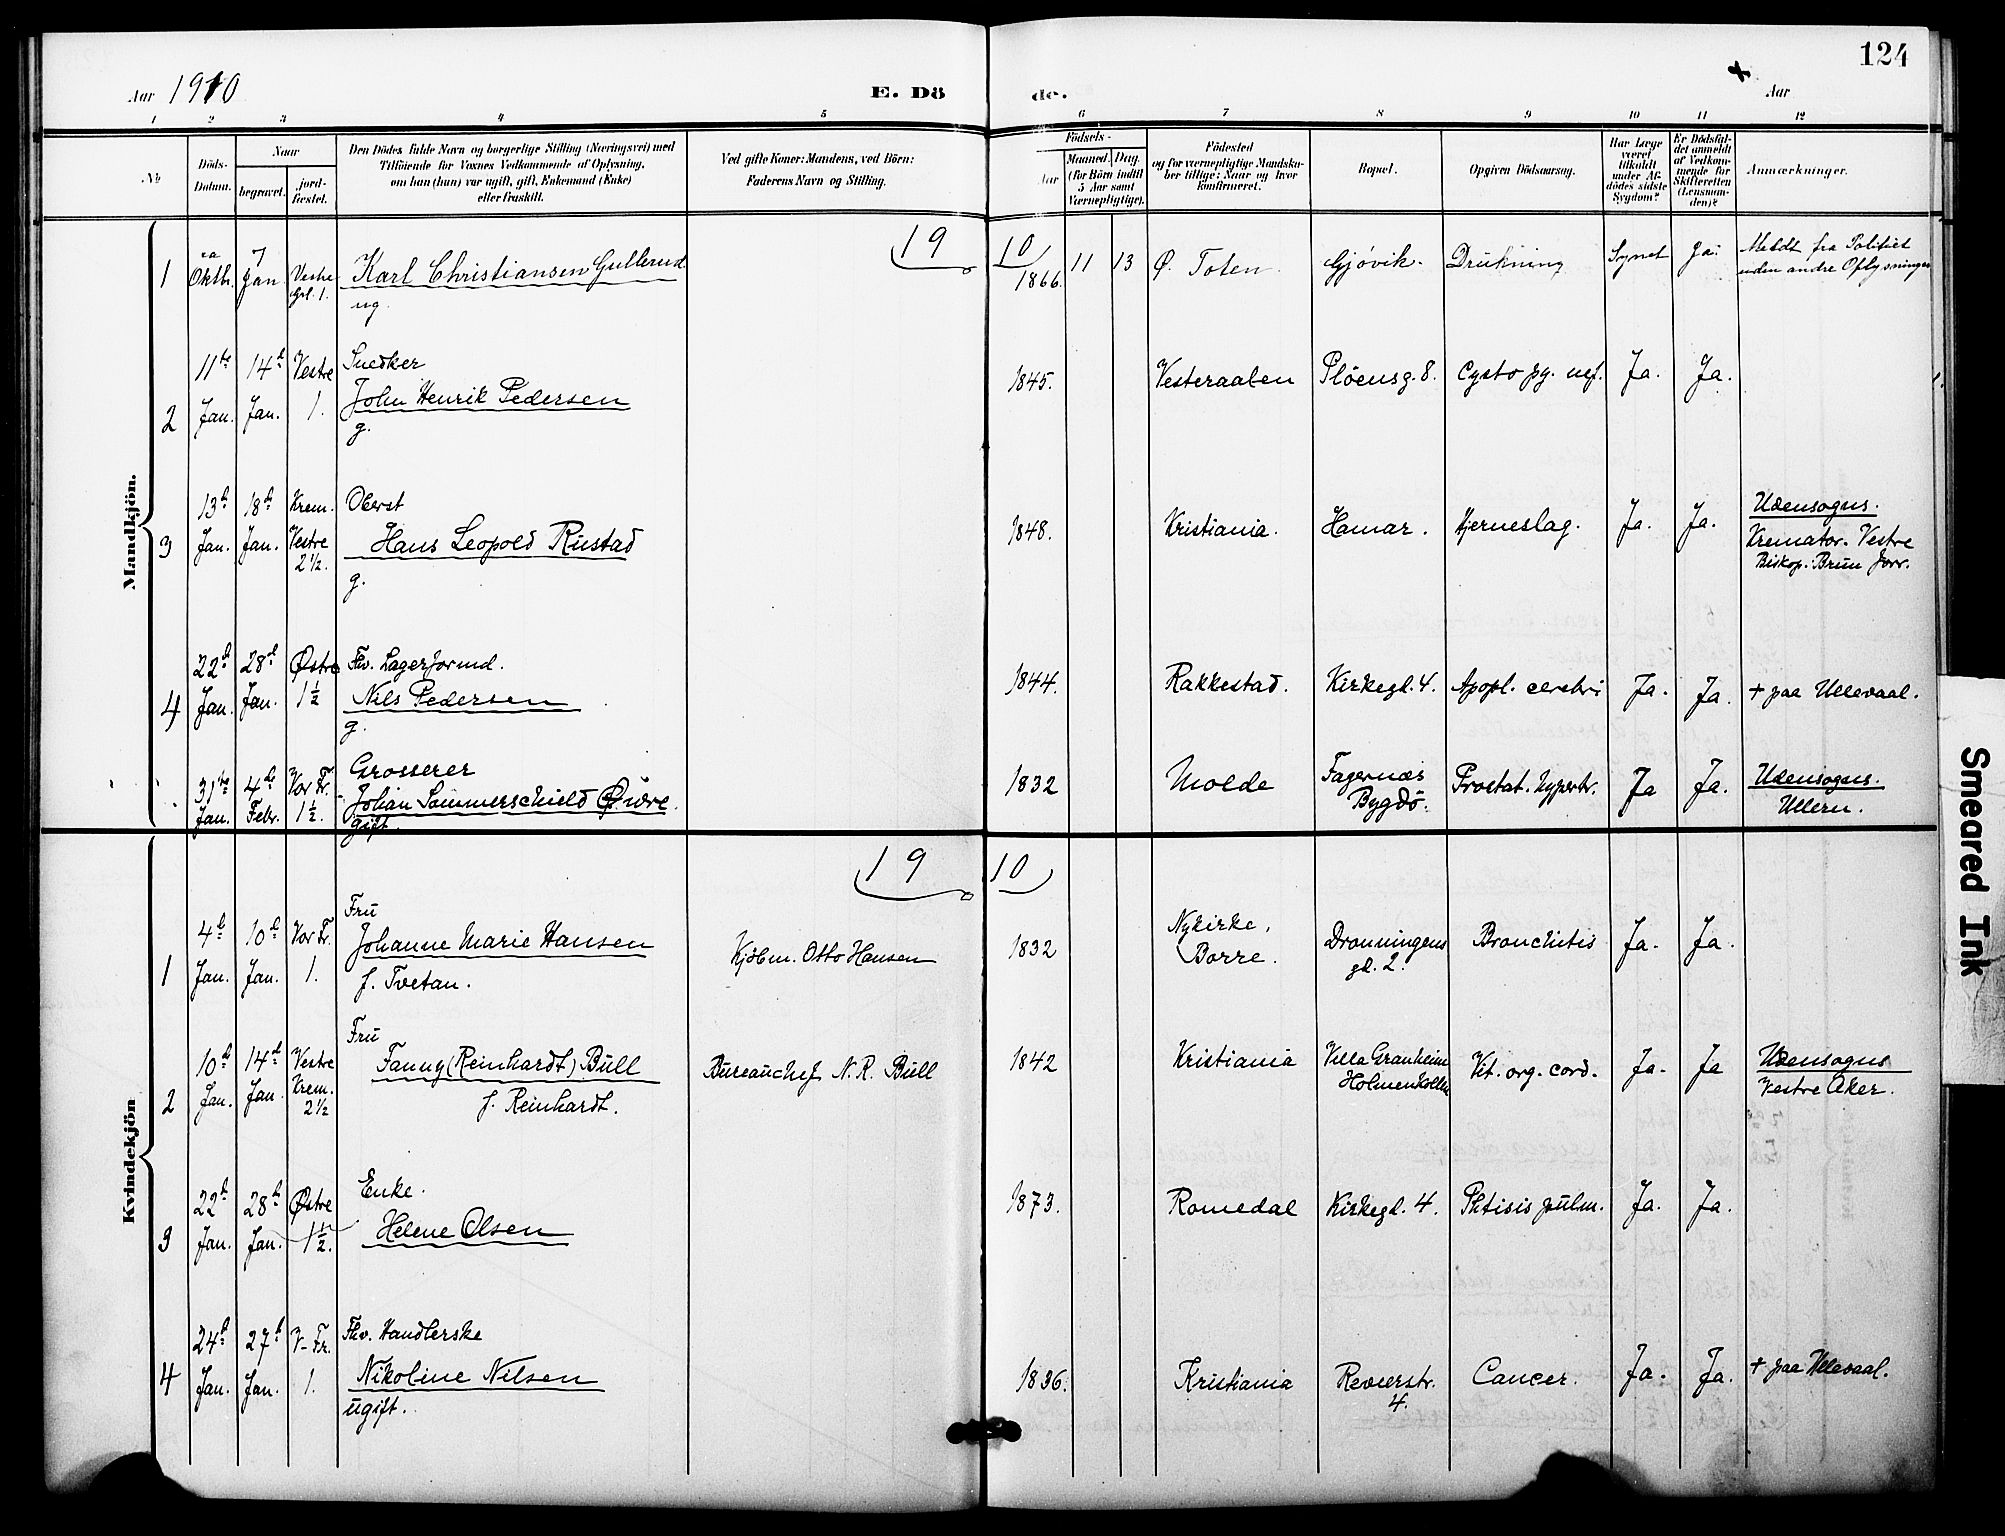 124
Aar 1910 E. Dö de. Aar
1 2 3 4 5 6 7 8 9 10 11 12
No
Döds-
Datum.
Naar
begravet.
jord-
fæstet.
Den Dödes fulde Navn og borgerlige Stilling (Næringsvei) med
Tilföiende for Voxnes Vedkommende af Oplysning,
om han (hun) var ugift, gift, Enkemand (Enke)
eller fraskilt.
Ved gifte Koner: Mandens, ved Börn:
Faderens Navn og Stilling.
Födsels-
Aar
Maaned. Dag.
(for Börn indtil
5 Aar samt
Værnepligtige).
Födested
og for værnepligtige Mandska-
ber tillige: Naar og hvor
konfirmeret.
Bopæl.
Opgiven Dödsaarsag.
Har Læge
været
tilkaldt
under Af-
dödes sidste
Sygdom?
Er Dödsfal-
det anmeldt
af Vedkom-
mende for
Skifteretten
(Lensman-
den)?
Anmærkninger.
Mandkjön.
19 10
1 ca Oktbr. 7 Jan Vestre Grl. 1. Karl Christiansen Gullerud
ug.
1866. 11 13 Ø. Toten Gjövik. Drukning Synet Ja. Meldt fra Politiet
uden andre Oplysninger
2 11te Jan. 14d Jan. Vestre 1. Snedker
John Henrik Pedersen
g.
1845. Vesteraalen Plöensg. 8. Cysto py. nef. Ja. Ja.
3 13d Jan. 18d Jan. Krem. Vestre 2½. Oberst
Hans Leopold Rustad
g.
1848. Kristiania. Hamar. Hjerneslag. Ja. Ja. Udensogns.
Kremator. Vestre
Biskop. Brun Forr.
4 22d Jan. 28d Jan. Østre 1½ Fhv. Lagerformd.
Nils Pedersen
g.
1844. Rakkestad. Kirkegd. 4. Apopl. cerebri Ja. Ja. + paa Ullevaal.
31te Jan. 4de Febr. Vor Fr. 1½. Grosserer
Johan Sommerschield Øwre.
gift.
1832 Molde Fagernæs
Bygdö. Prostat. hypertr. Ja Ja. Udensogns.
Ullern.
Kvindekjön
19 10
1 4d Jan. 10d Jan. Vor Fr. 1. Fru
Johanne Marie Hansen
f. Tvetan.
Kjöbm. Otto Hansen 1832 Nykirke,
Borre. Dronningens
gd. 2. Bronchitis Ja. Ja.
2 10d Jan. 14d Jan. Vestre Krem. 2½ Fru
Fanny (Reinhardt) Bull
f. Reinhardt.
Bureauchef N. R. Bull 1842 Kristiania Villa Granheim
Holmenkollen Vit. org. cord. Ja. Ja Udensogns
Vestre Aker.
3 22d Jan. 28d Jan. Østre 1½. Enke.
Helene Olsen
1873. Romedal Kirkegd. 4. Phtisis pulm. Ja. Ja.
4 24d Jan. 27d Jan. V. Fr. 1. Fhv. Handlerske
Nikoline Nilsen
ugift.
1836. Kristiania Revierstr.
4. Cancer. Ja. Ja. + paa Ullevaal.
Smeared Ink